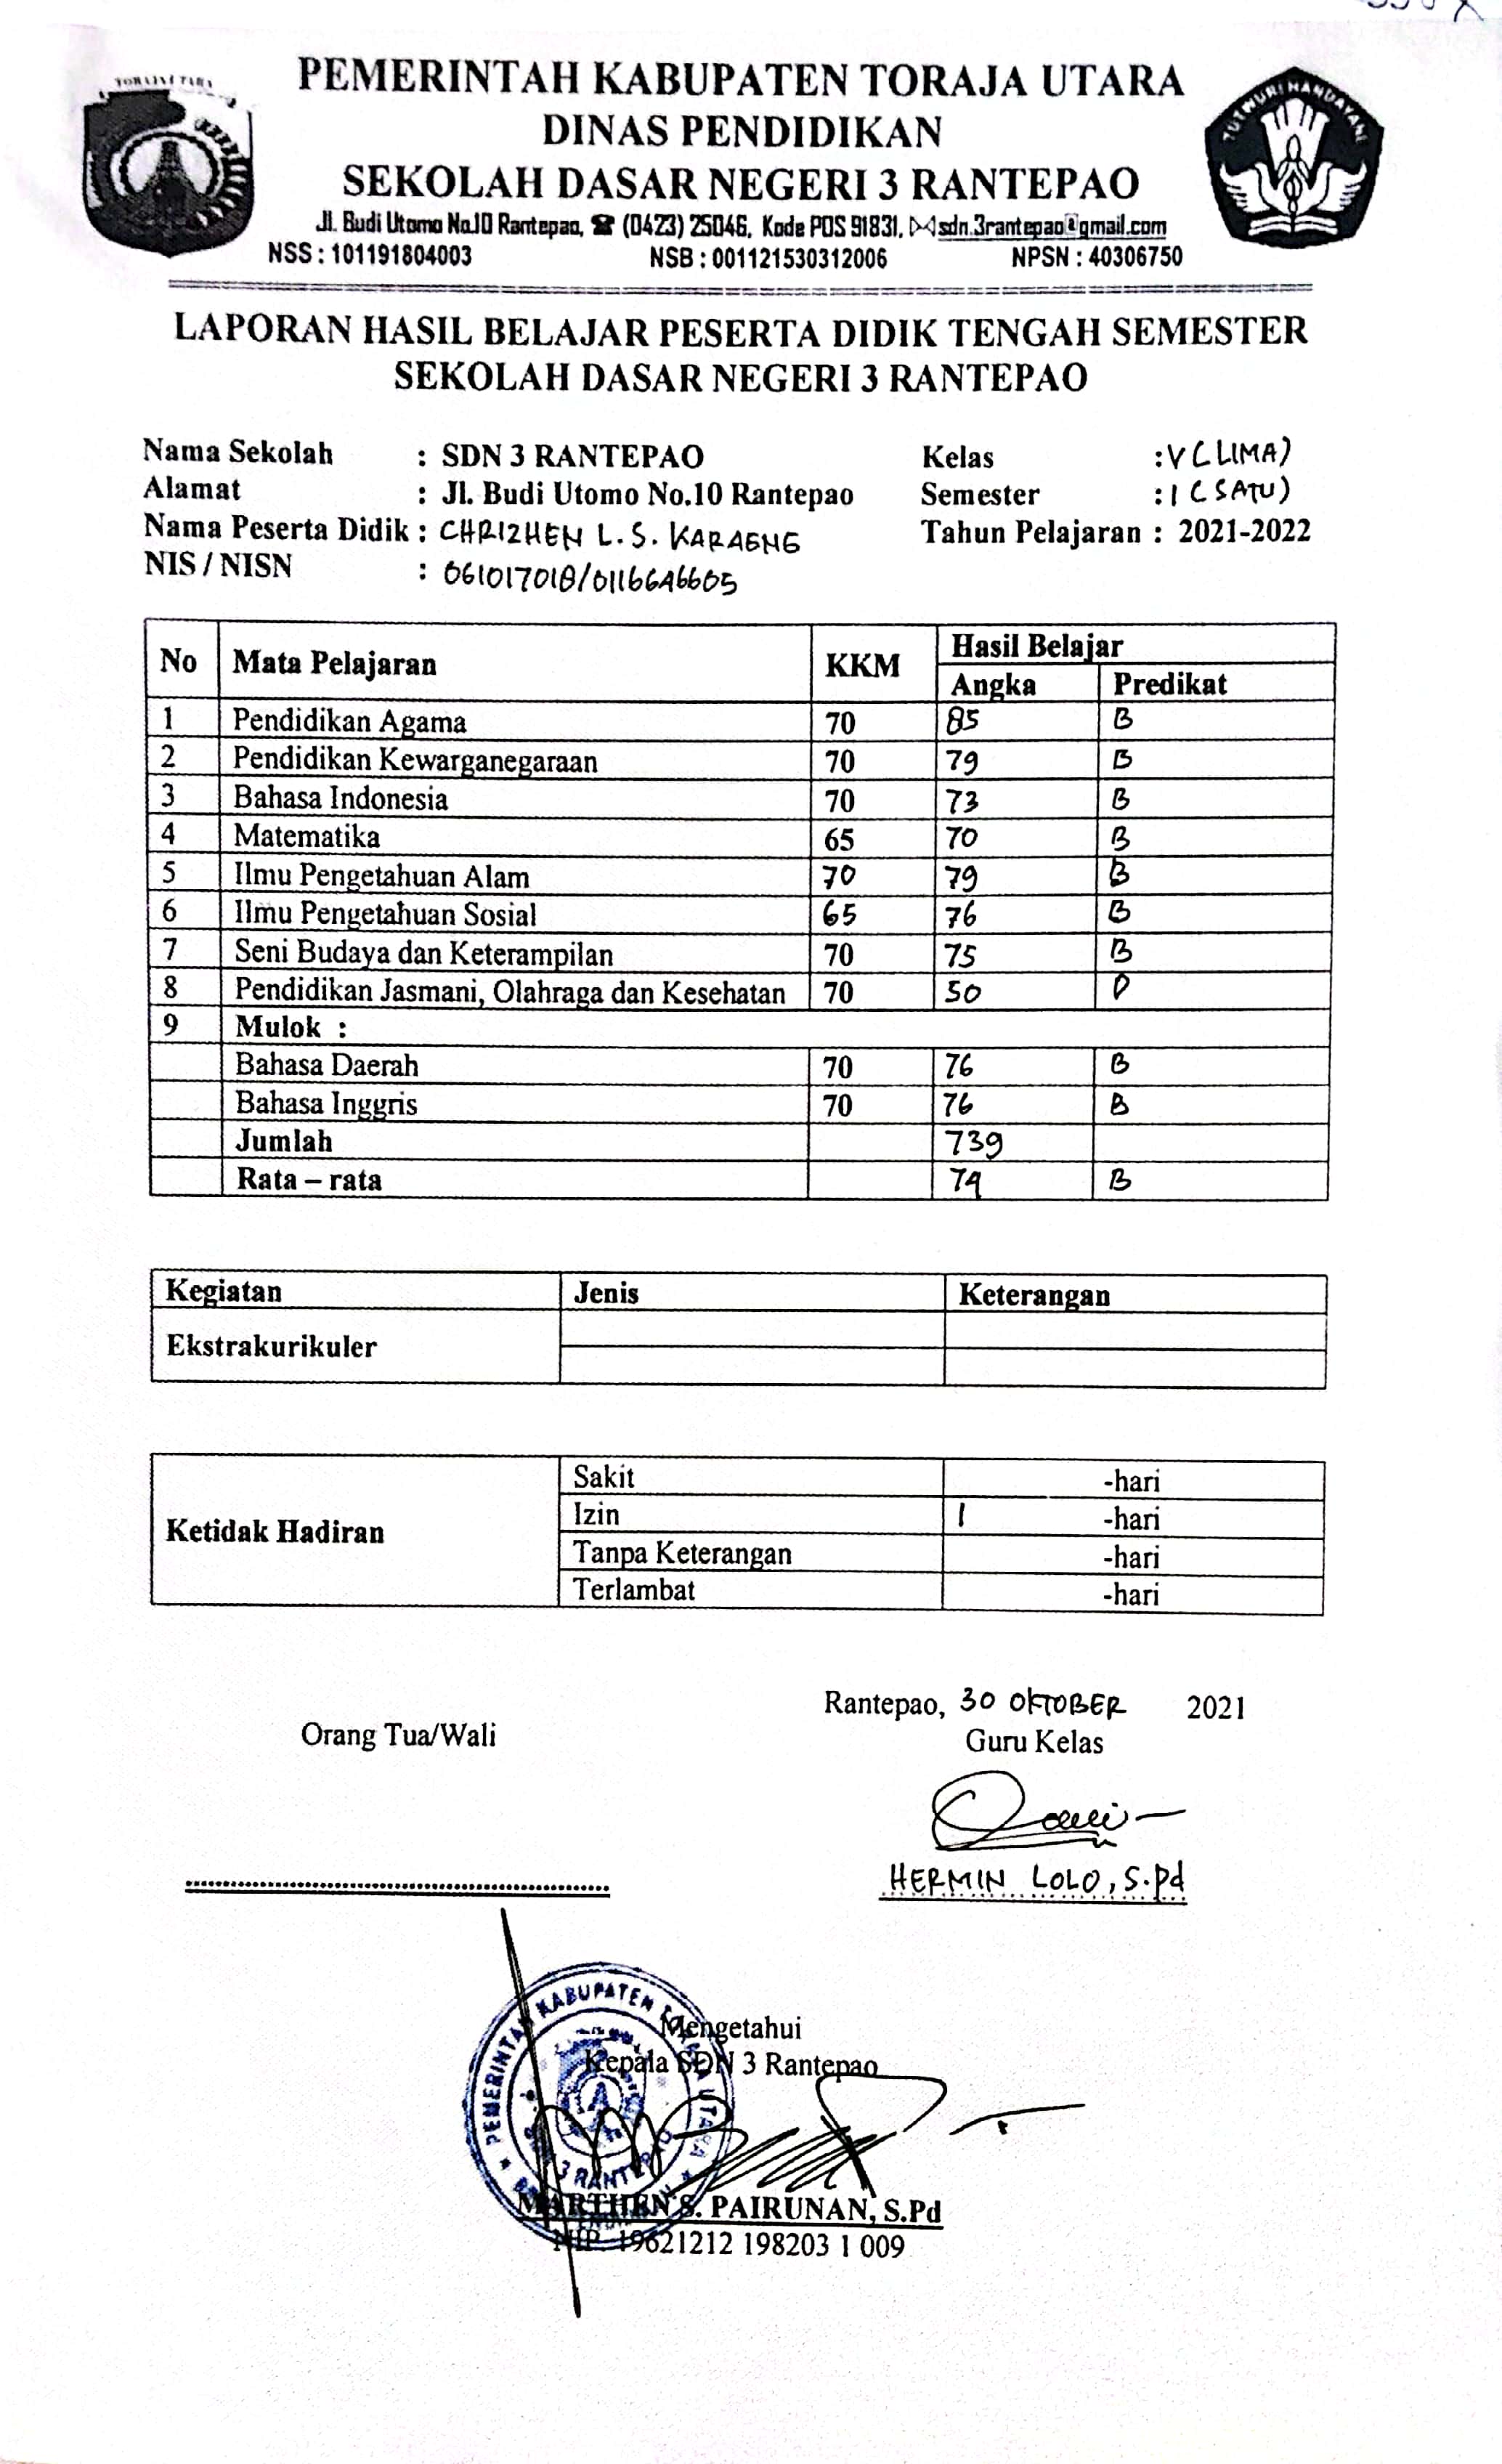 PEMERINTAH KABUPATEN TORAJA UTARA
DINAS PENDIDIKAN
SEKOLAH DASAR NEGERI 3 RANTEPAO
Jl. Budi Utomo No.10 Rantepao, ☎ (0423) 25046, Kode POS 91831, sdn.3rantepao@gmail.com
NSS : 101191804003 NSB : 001121530312006 NPSN : 40306750
TUT WURI HANDAYANI
LAPORAN HASIL BELAJAR PESERTA DIDIK TENGAH SEMESTER
SEKOLAH DASAR NEGERI 3 RANTEPAO
Nama Sekolah : SDN 3 RANTEPAO Kelas : V (LIMA)
Alamat : Jl. Budi Utomo No.10 Rantepao Semester : I (SATU)
Nama Peserta Didik : CHRIZHEN L. S. KARAENG Tahun Pelajaran : 2021-2022
NIS / NISN : 061017018/0116646605
No Mata Pelajaran KKM Hasil Belajar
Angka Predikat
1 Pendidikan Agama 70 85 B
2 Pendidikan Kewarganegaraan 70 79 B
3 Bahasa Indonesia 70 73 B
4 Matematika 65 70 B
5 Ilmu Pengetahuan Alam 70 79 B
6 Ilmu Pengetahuan Sosial 65 76 B
7 Seni Budaya dan Keterampilan 70 75 B
8 Pendidikan Jasmani, Olahraga dan Kesehatan 70 50 D
9 Mulok :
Bahasa Daerah 70 76 B
Bahasa Inggris 70 76 B
Jumlah 739
Rata – rata 74 B
Kegiatan Jenis Keterangan
Ekstrakurikuler
Ketidak Hadiran
Sakit -hari
Izin 1 -hari
Tanpa Keterangan -hari
Terlambat -hari
Rantepao, 30 OKTOBER 2021
Orang Tua/Wali Guru Kelas
HERMIN LOLO, S.Pd
PEMERINTAH KABUPATEN TORAJA UTARA
3 RANTEPAO
Mengetahui
Kepala SDN 3 Rantepao
MARTHEN S. PAIRUNAN, S.Pd
NIP. 19621212 198203 1 009